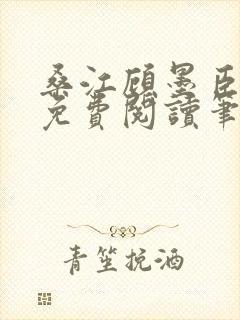 桑江顾墨臣
免費閱讀筆
青笙挽酒